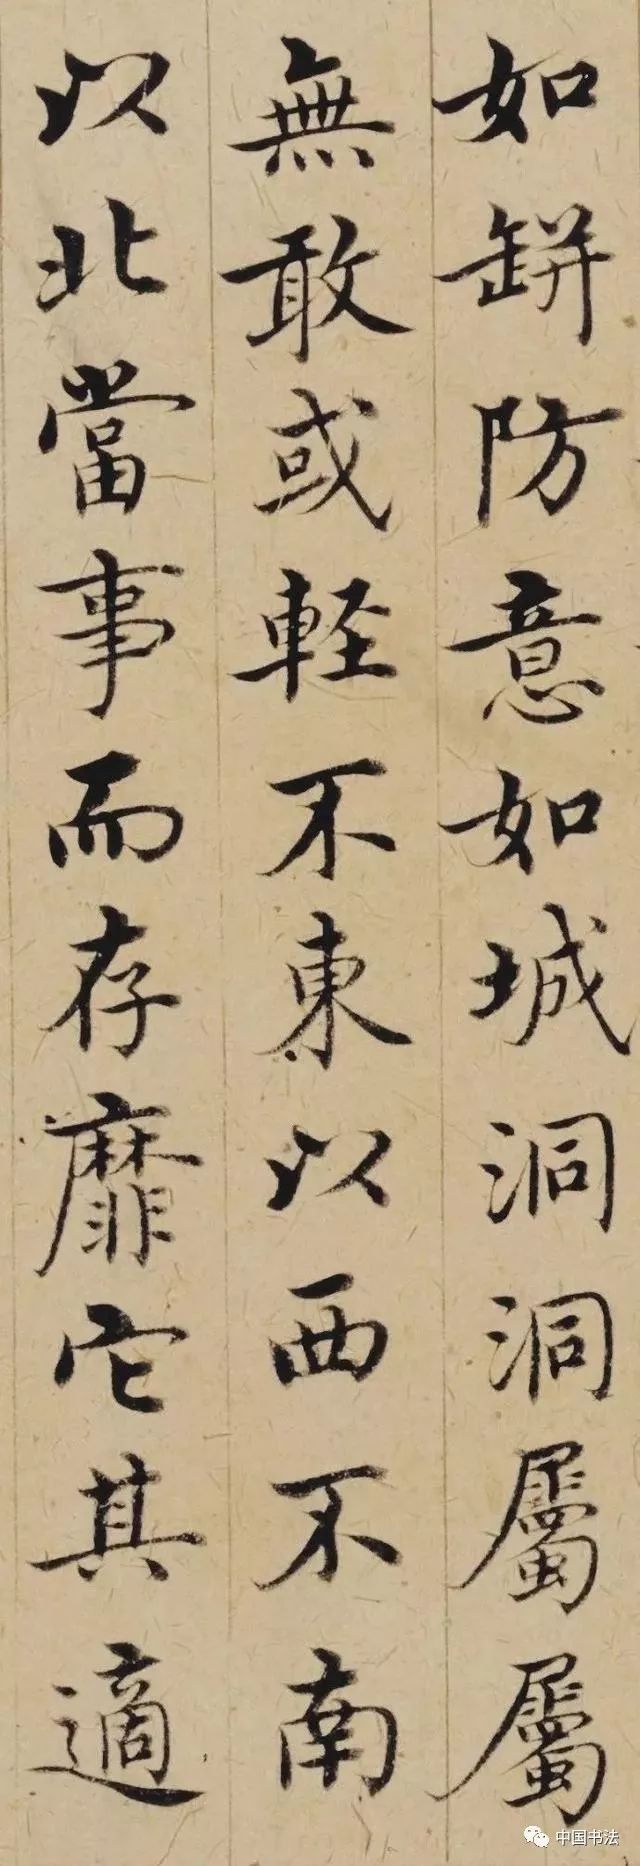 如缾防意如城洞洞屬屬
無敢或軽不東以西不南
以北當事而存靡它其適
中国书法